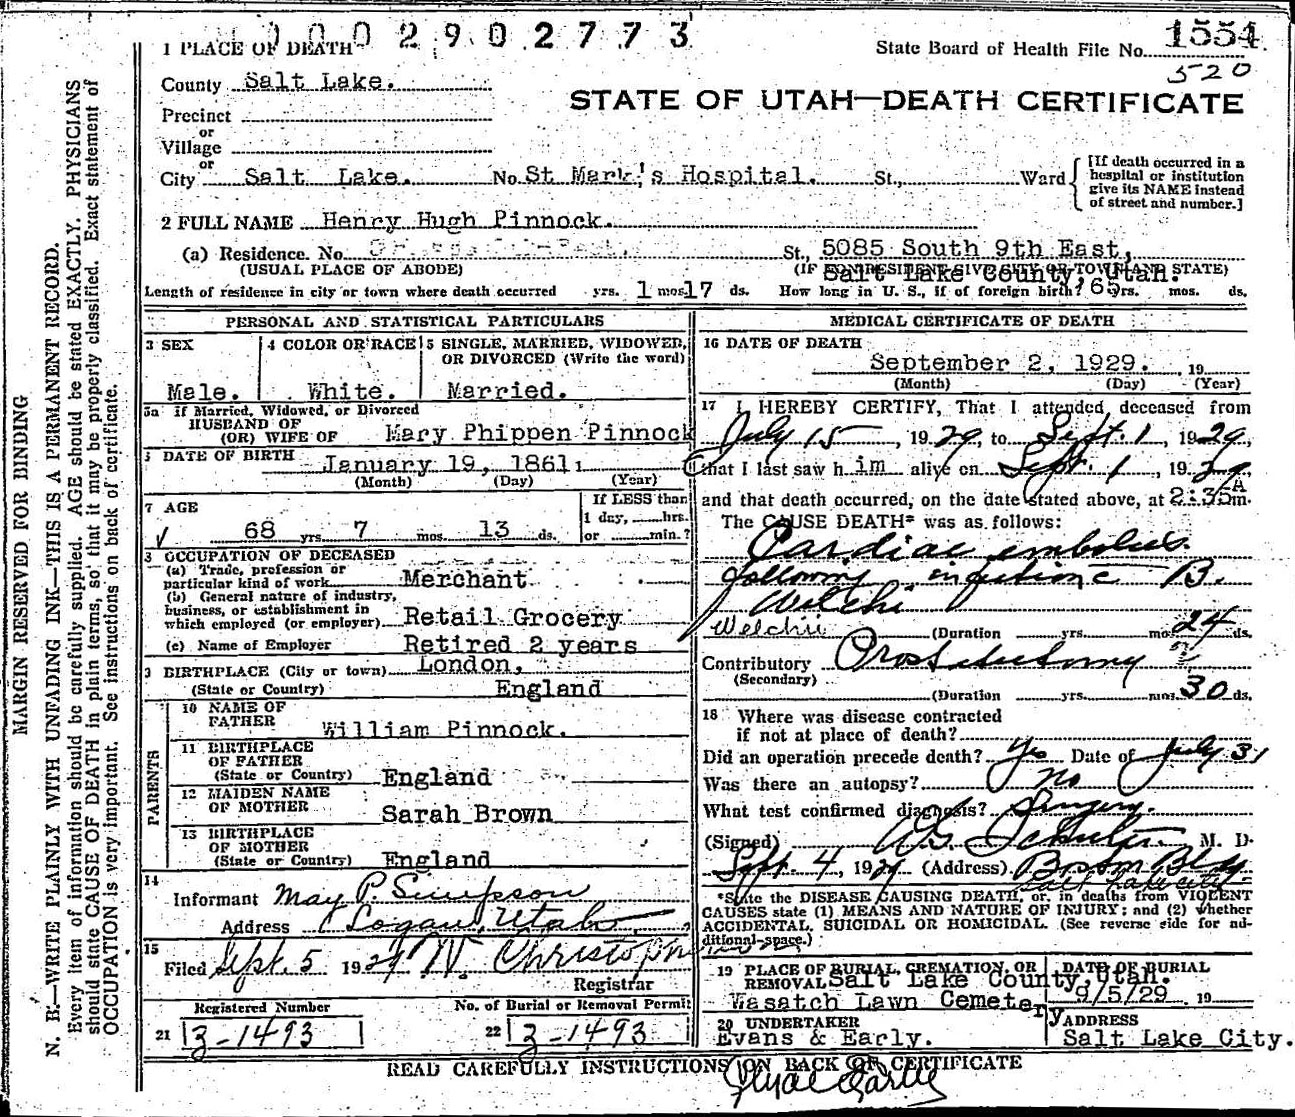 0002902773
1 PLACE OF DEATH
State Board of Health File No. 1554
520
County Salt Lake.
STATE OF UTAH—DEATH CERTIFICATE
Precinct
or
Village
or
City Salt Lake. No. St Mark's Hospital. St., Ward
[If death occurred in a hospital or institution give its NAME instead of street and number.]
2 FULL NAME Henry Hugh Pinnock.
(a) Residence. No. St., 5085 South 9th East,
Salt Lake County, Utah.
(USUAL PLACE OF ABODE) (IF NONRESIDENT GIVE CITY OR TOWN AND STATE)
Length of residence in city or town where death occurred yrs. 1 mos. 17 ds. How long in U. S., if of foreign birth? 65 yrs. mos. ds.
PERSONAL AND STATISTICAL PARTICULARS
3 SEX
Male.
4 COLOR OR RACE
White.
5 SINGLE, MARRIED, WIDOWED, OR DIVORCED (Write the word)
Married.
5a If Married, Widowed, or Divorced
HUSBAND OF
(OR) WIFE OF Mary Phippen Pinnock
DATE OF BIRTH January 19, 1861.
(Month) (Day) (Year)
7 AGE
68 yrs. 7 mos. 13 ds.
If LESS than
1 day, hrs.
or min.?
8 OCCUPATION OF DECEASED
(a) Trade, profession or
particular kind of work Merchant
(b) General nature of industry,
business, or establishment in
which employed (or employer) Retail Grocery
(c) Name of Employer Retired 2 years
9 BIRTHPLACE (City or town) London,
(State or Country) England
PARENTS
10 NAME OF
FATHER William Pinnock.
11 BIRTHPLACE
OF FATHER
(State or Country) England
12 MAIDEN NAME
OF MOTHER Sarah Brown
13 BIRTHPLACE
OF MOTHER
(State or Country) England
14
Informant May P. Simpson
Address Logan, Utah
15
Filed Sept. 5 1929 W. Christopherson
Registrar
Registered Number
21 3-1493
No. of Burial or Removal Permit
22 3-1493
MEDICAL CERTIFICATE OF DEATH
16 DATE OF DEATH
September 2, 1929. , 19
(Month) (Day) (Year)
17 I HEREBY CERTIFY, That I attended deceased from
July 15, 1929 to Sept. 1, 1929,
that I last saw h im alive on Sept. 1, 1929,
and that death occurred, on the date stated above, at 2:35 A m.
The CAUSE DEATH* was as follows:
Cardiac embolus
following infection c B.
Welchi
Welchii (Duration yrs. mos. 24 ds.
Contributory Prostatectomy
(Secondary)
(Duration yrs. mos. 30 ds.
18 Where was disease contracted
if not at place of death?
Did an operation precede death? Yes Date of July 31
Was there an autopsy? no
What test confirmed diagnosis? Surgery.
(Signed) M. D.
Sept. 4, 1929 (Address) Boston Bldg
Salt Lake City
*State the DISEASE CAUSING DEATH, or, in deaths from VIOLENT
CAUSES state (1) MEANS AND NATURE OF INJURY; and (2) whether
ACCIDENTAL, SUICIDAL OR HOMICIDAL. (See reverse side for ad-
ditional space.)
19 PLACE OF BURIAL, CREMATION, OR
REMOVAL Salt Lake County, Utah.
Wasatch Lawn Cemetery
DATE OF BURIAL
9/5/29 19
20 UNDERTAKER
Evans & Early.
ADDRESS
Salt Lake City.
READ CAREFULLY INSTRUCTIONS ON BACK OF CERTIFICATE
MARGIN RESERVED FOR BINDING
N. B.—WRITE PLAINLY WITH UNFADING INK—THIS IS A PERMANENT RECORD.
Every item of information should be carefully supplied. AGE should be stated EXACTLY. PHYSICIANS
should state CAUSE OF DEATH in plain terms, so that it may be properly classified. Exact statement of
OCCUPATION is very important. See instructions on back of certificate.